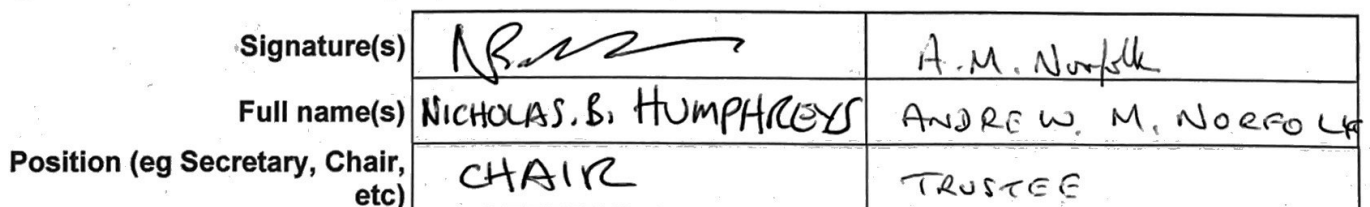 Signature(s) A.M. Norfolk
Full name(s) NICHOLAS. B. HUMPHREYS ANDREW. M. NORFOLK
Position (eg Secretary, Chair, CHAIR TRUSTEE
etc)